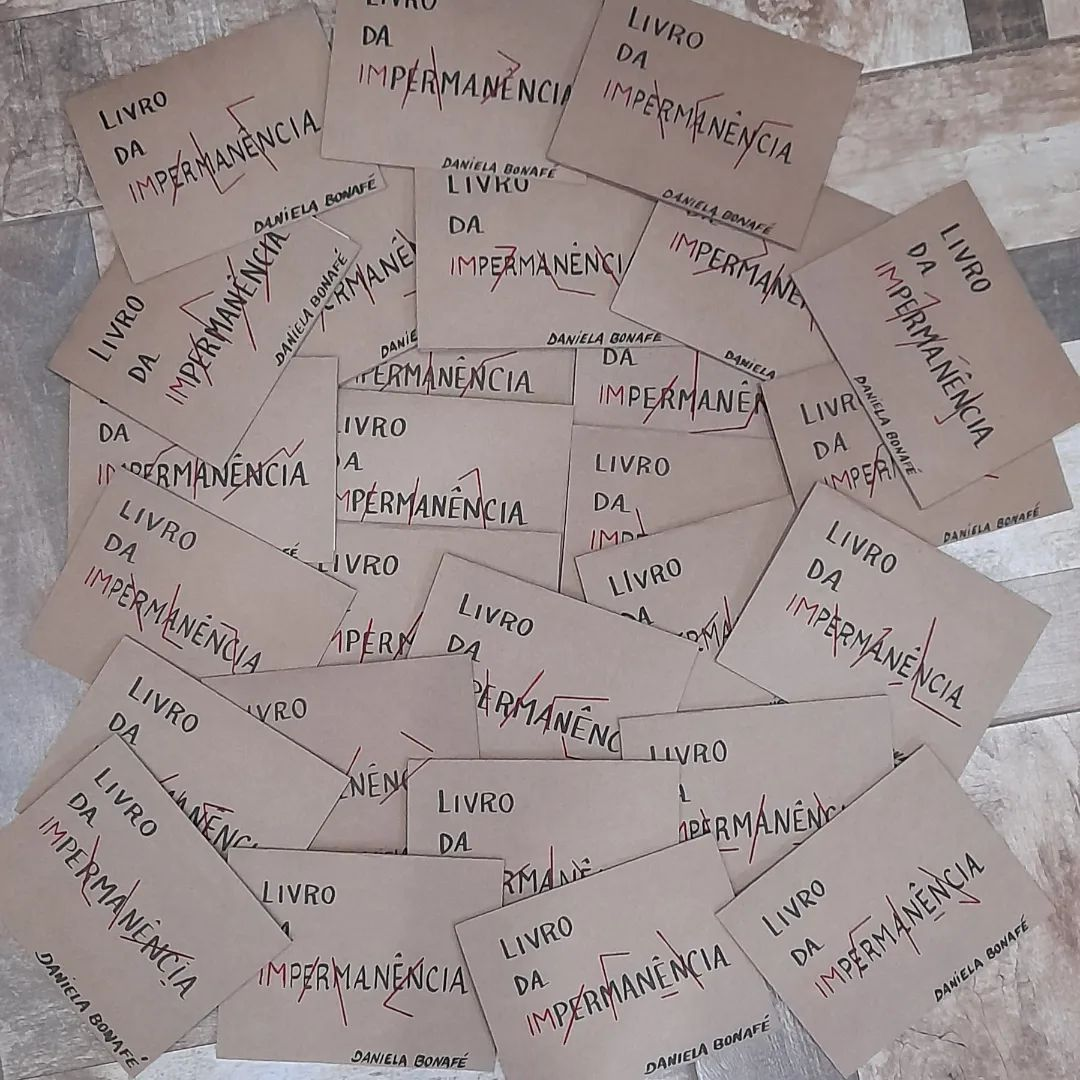 LIVRO
DA
IMPERMANÊNCIA
DANIELA BONAFÉ
LIVRO
DA
IMPERMANÊNCIA
DANIELA BONAFÉ
LIVRO
DA
IMPERMANÊNCIA
DANIELA BONAFÉ
LIVRO
DA
IMPERMANÊNCIA
DANIELA BONAFÉ
ERMANÊ
DANIE
LIVRO
DA
IMPERMANÊNCI
DANIELA BONAFÉ
IMPERMANE
DANIELA
LIVRO
DA
IMPERMANÊNCIA
DANIELA BONAFÉ
DA
IMPERMANÊNCIA
FÉ
PERMANÊNCIA
DA
IMPERMANÊN
LIVR
DA
IMPER
DANIELA BONAFÉ
IVRO
DA
IMPERMANÊNCIA
LIVRO
DA
IMP
LIVRO
DA
IMPERMANÊNCIA
LIVRO
IMPERM
LIVRO
DA
PERMANÊNC
LIVRO
DA
ERMA
LIVRO
DA
IMPERMANÊNCIA
LIVRO
DA
ANÊNC
IVRO
NÊNC
LIVRO
DA
RMANÊ
LIVRO
A
IMPERMANÊNC
LIVRO
DA
IMPERMANÊNCIA
DANIELA BONAFÉ
LIVRO
A
IMPERMANÊNCIA
DANIELA BONAFÉ
LIVRO
DA
IMPERMANÊNCIA
DANIELA BONAFÉ
LIVRO
DA
IMPERMANÊNCIA
DANIELA BONAFÉ